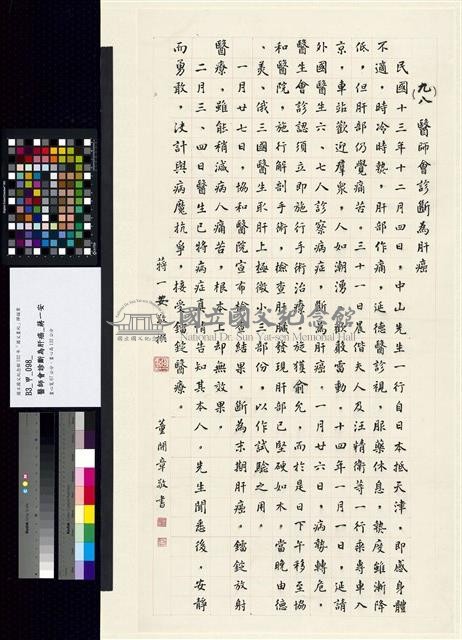 九八
醫師會診斷為肝癌
民國十三年十二月四日，中山先生一行自日本抵天津，即感身體
不適，時冷時熱，肝部作痛，延德醫診視，服藥休息，熱度雖漸降
低，但肝部仍覺痛苦。三十一日晨偕夫人及汪精衛等一行乘專車入
京，車站歡迎羣眾，人如潮湧，歡歡雷動，十四年一月一日，延請
外國醫生六、七人診察病症，斷為肝癌。一月廿六日，病勢轉危，
醫生會診認須立即施行手術治療，先生旋獲俞允，而於是日下午移至協
和醫院，施行解剖手術，檢查肝臟發現肝部已堅硬如木，當晚由德
、美、俄三國醫生取肝上極微小三部份，以作試驗之用。
一月廿七日，協和醫院宣布檢查結果，斷為末期肝癌。鐳錠放射
醫療，雖能稍減病人痛苦，根本上却無效果。
二月三、四日醫生已將病症真情告知其本人。先生聞悉後，安靜
而勇敢，決計與病魔抗爭，接受鐳錠醫療。
蔣一安敬撰
董開章敬書
國立國父紀念館
National Dr. Sun Yat-sen Memorial Hall
B3_甲_098_
醫師會診斷為肝癌_蔣一安
Kodak